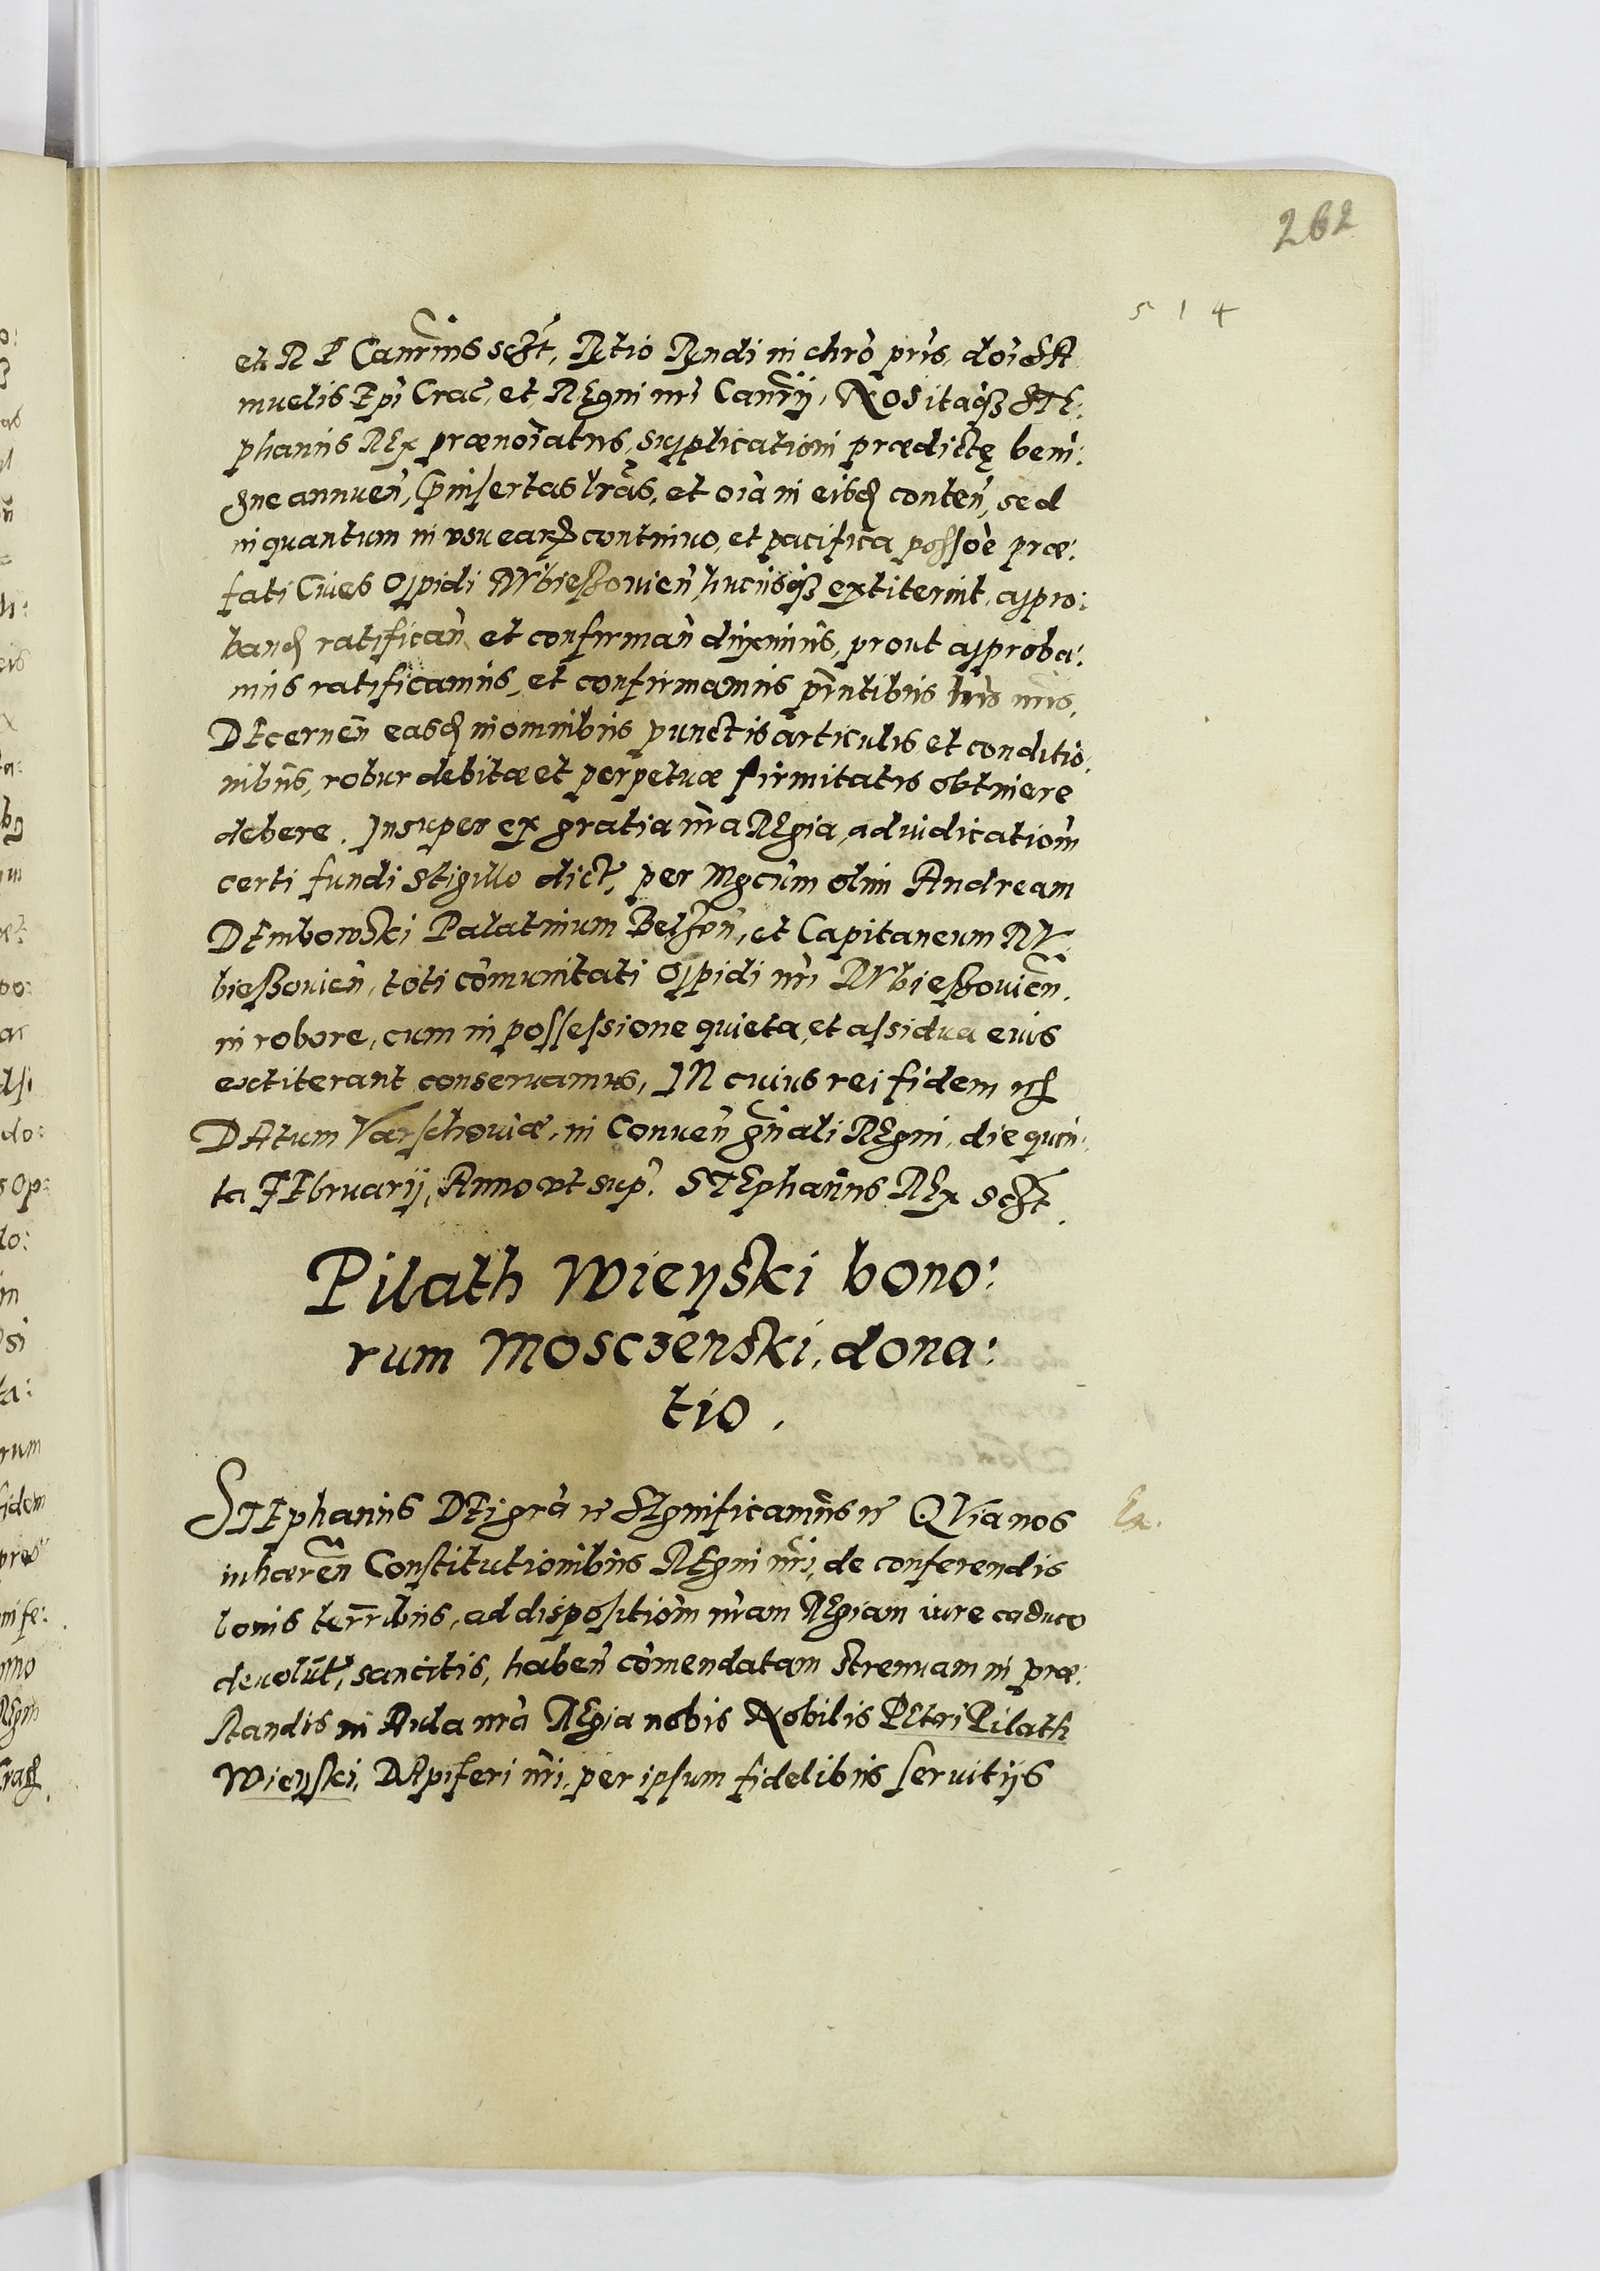 262
5 1 4
et R P Canrius scst, Rtio Rndi in chro pris, doi SA
muelis Epi Crac, et REgni nri Canrij, NOS itaqз STE:
phanus REx prænoiatus, supplicationi prædictę beni:
gne annuen, insertas lras, et oia in eisd conten, sed
inquantum in vsu eard continuo, et pacifica possoe præ:
fati Ciues Oppidi RVbießouien hucusqз extiterint, appro:
band ratifican et confirman duximus, prout approba:
mus ratificamus, et confirmamus pntibus lris nris,
DEcernen easd in omnibus punctis articulis et conditio:
nibus, robur debitæ et perpetuæ firmitatis obtinere
debere. Insuper ex gratia nra REgia, adiudicatiom
certi fundi Stigillo dict, per Mgcum olim Andream
DEmbowski Palatinum Belzen, et Capitaneum RV
bießouien, toti comunitati Oppidi nri RVbießouien,
in robore, cum in possessione quieta, et assidua eius
extiterant conseruamus, IN cuius rei fidem
DAtum Varschouiæ, in Conuen gnali REgni, die quin:
ta FEbruarij, Anno vt sup. STEphanus REx scst
Pilath Wieyski bono:
rum Mosczenski, dona:
tio.
STEphanus DEi gra SIgnificamus QVia nos
inhæren Constitutionibus REgni nri, de conferendis
bonis terribus, ad dispositiom nram REgiam iure caduco
deuolut, sancitis, haben comendatam strenuam in præ:
standis in Aula nra REgia nobis Nobilis PEtri Pilath
Wieyski, DApiferi nri, per ipsum fidelibus seruitijs
Ex.